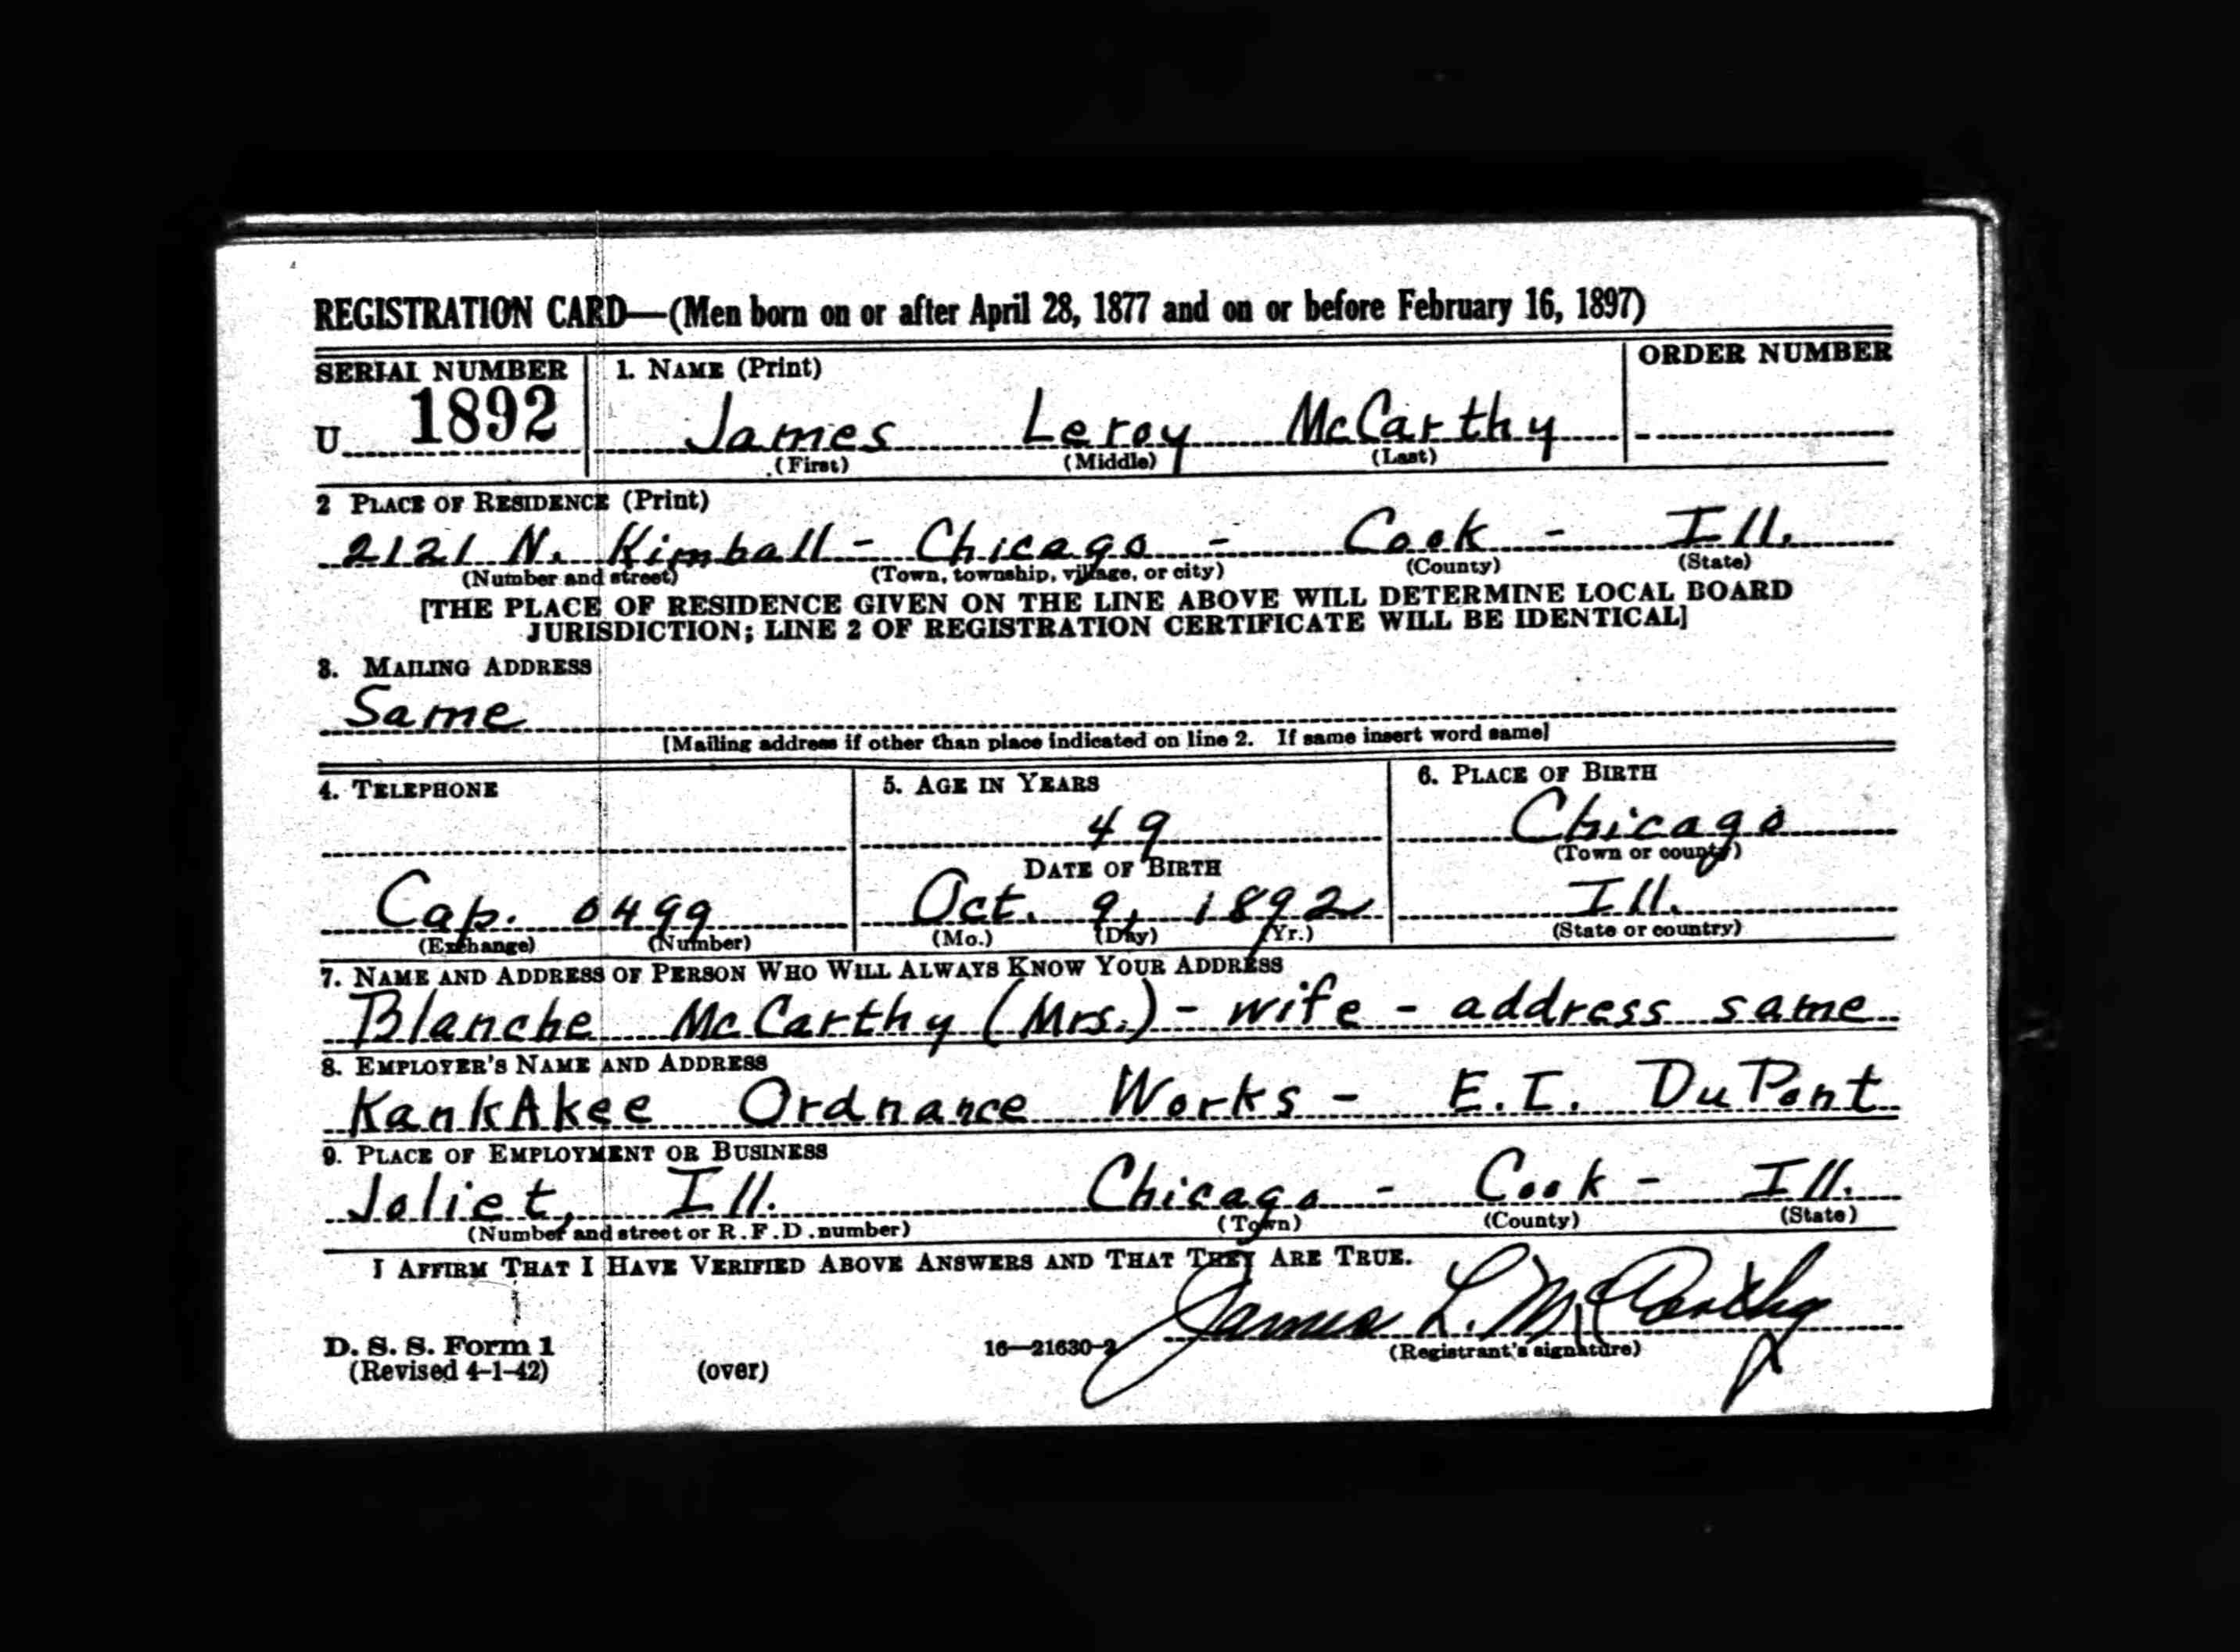 REGISTRATION CARD—(Men born on or after April 28, 1877 and on or before February 16, 1897)
SERIAL NUMBER 1. NAME (Print) ORDER NUMBER
U 1892 James Leroy McCarthy
(First) (Middle) (Last)
2 PLACE OF RESIDENCE (Print)
2121 N. Kimball - Chicago - Cook - Ill.
(Number and street) (Town, township, village, or city) (County) (State)
[THE PLACE OF RESIDENCE GIVEN ON THE LINE ABOVE WILL DETERMINE LOCAL BOARD
JURISDICTION; LINE 2 OF REGISTRATION CERTIFICATE WILL BE IDENTICAL]
3. MAILING ADDRESS
Same
[Mailing address if other than place indicated on line 2. If same insert word same]
4. TELEPHONE 5. AGE IN YEARS 6. PLACE OF BIRTH
49 Chicago
DATE OF BIRTH (Town or county)
Cap. 0499 Oct. 9, 1892 Ill.
(Exchange) (Number) (Mo.) (Day) (Yr.) (State or country)
7. NAME AND ADDRESS OF PERSON WHO WILL ALWAYS KNOW YOUR ADDRESS
Blanche McCarthy (Mrs.) - wife - address same
8. EMPLOYER'S NAME AND ADDRESS
KankAkee Ordnance Works - E.I. DuPont
9. PLACE OF EMPLOYMENT OR BUSINESS
Joliet, Ill. Chicago - Cook - Ill.
(Number and street or R.F.D. number) (Town) (County) (State)
I AFFIRM THAT I HAVE VERIFIED ABOVE ANSWERS AND THAT THEY ARE TRUE.
James L. McCarthy
D. S. S. Form 1 16—21630-2 (Registrant's signature)
(Revised 4-1-42) (over)